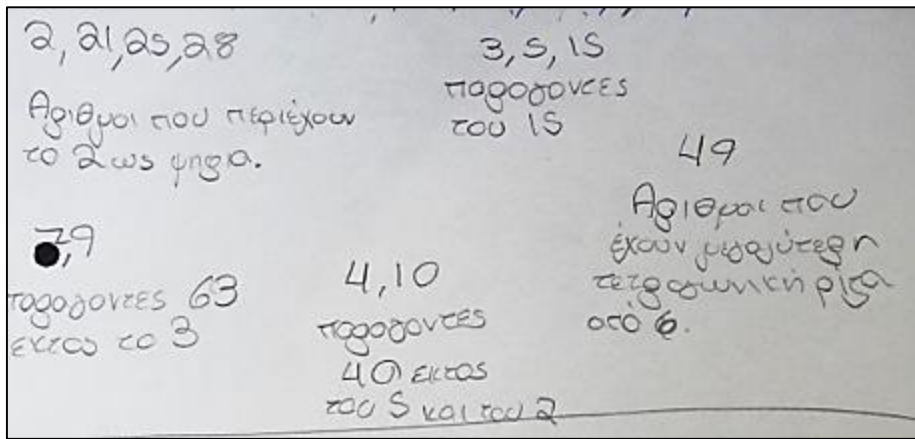 2, 21, 25, 28
Αριθμοι που περιέχουν
το 2 ως ψηφιο.
3, 5, 15
παραγοντες
του 15
49
Αριθμοι που
έχουν μεγαλύτερη
τετραγωνική ρίζα
από 6.
7, 9
παραγοντες 63
εκτος το 3
4, 10
παραγοντες
40 εκτος
του 5 και του 2